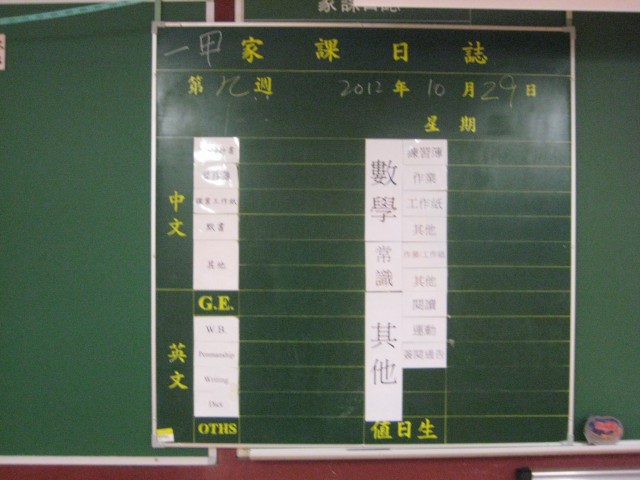 家課日誌
一甲家課日誌
第九週 2012年10月29日
星期
中文
默書
其他
G.E.
英文
W.B.
Penmanship
Writing
Dict.
OTHS
數學
練習簿
作業
工作紙
其他
常識
作業/工作紙
其他
其他
閱讀
運動
簽閱通告
值日生